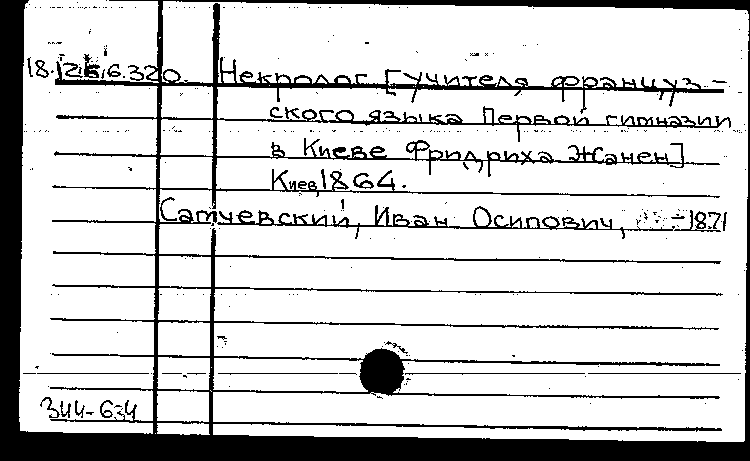 18.126.6.320. Некролог [учителя француз-
ского языка Первой гимназии
в Киеве Фридриха Жанен]
Киев, 1864.
Сатчевский, Иван Осипович, -1871
344-634